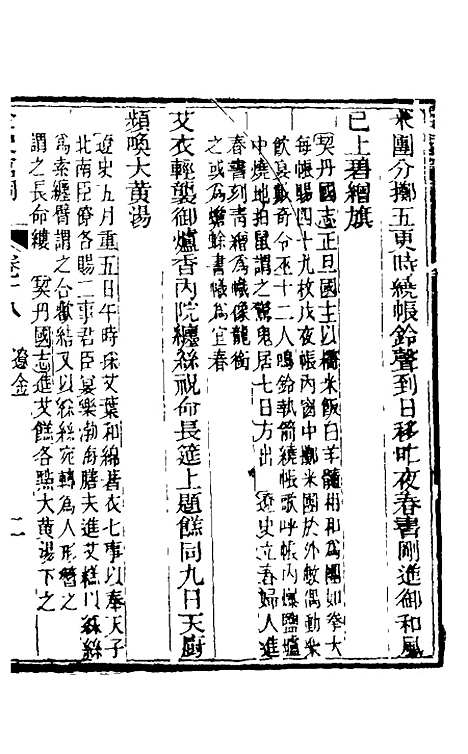 米團分擲五更時繞帳鈴聲到日移昨夜春書剛進御和風
已上碧繒旗
契丹國志正旦國主以糯米飯白羊髓相和爲團如拳大
每帳賜四十九枚戊夜帳內窗中擲米團於外數偶動樂
飲宴數奇令巫十二人鳴鈴執箭繞帳歌呼帳內爆鹽爐
中燒地拍鼠謂之驚鬼居七日方出
遼史立春婦人進
春書刻靑繒爲幟像龍銜
之或爲蟾蜍書幟爲宜春
艾衣輕製御爐香內院纏絲祝命長筵上題餻同九日天厨
頻喚大黃湯
遼史五月重五日午時採艾葉和綿著衣七事以奉天子
北南臣僚各賜三事君臣宴樂渤海膳夫進艾糕以絲絲
爲索纏臂謂之合歡結又以絲絲宛轉爲人形簪之
謂之長命縷
契丹國志進艾餻各點大黃湯下之
卷十八
遼金
二